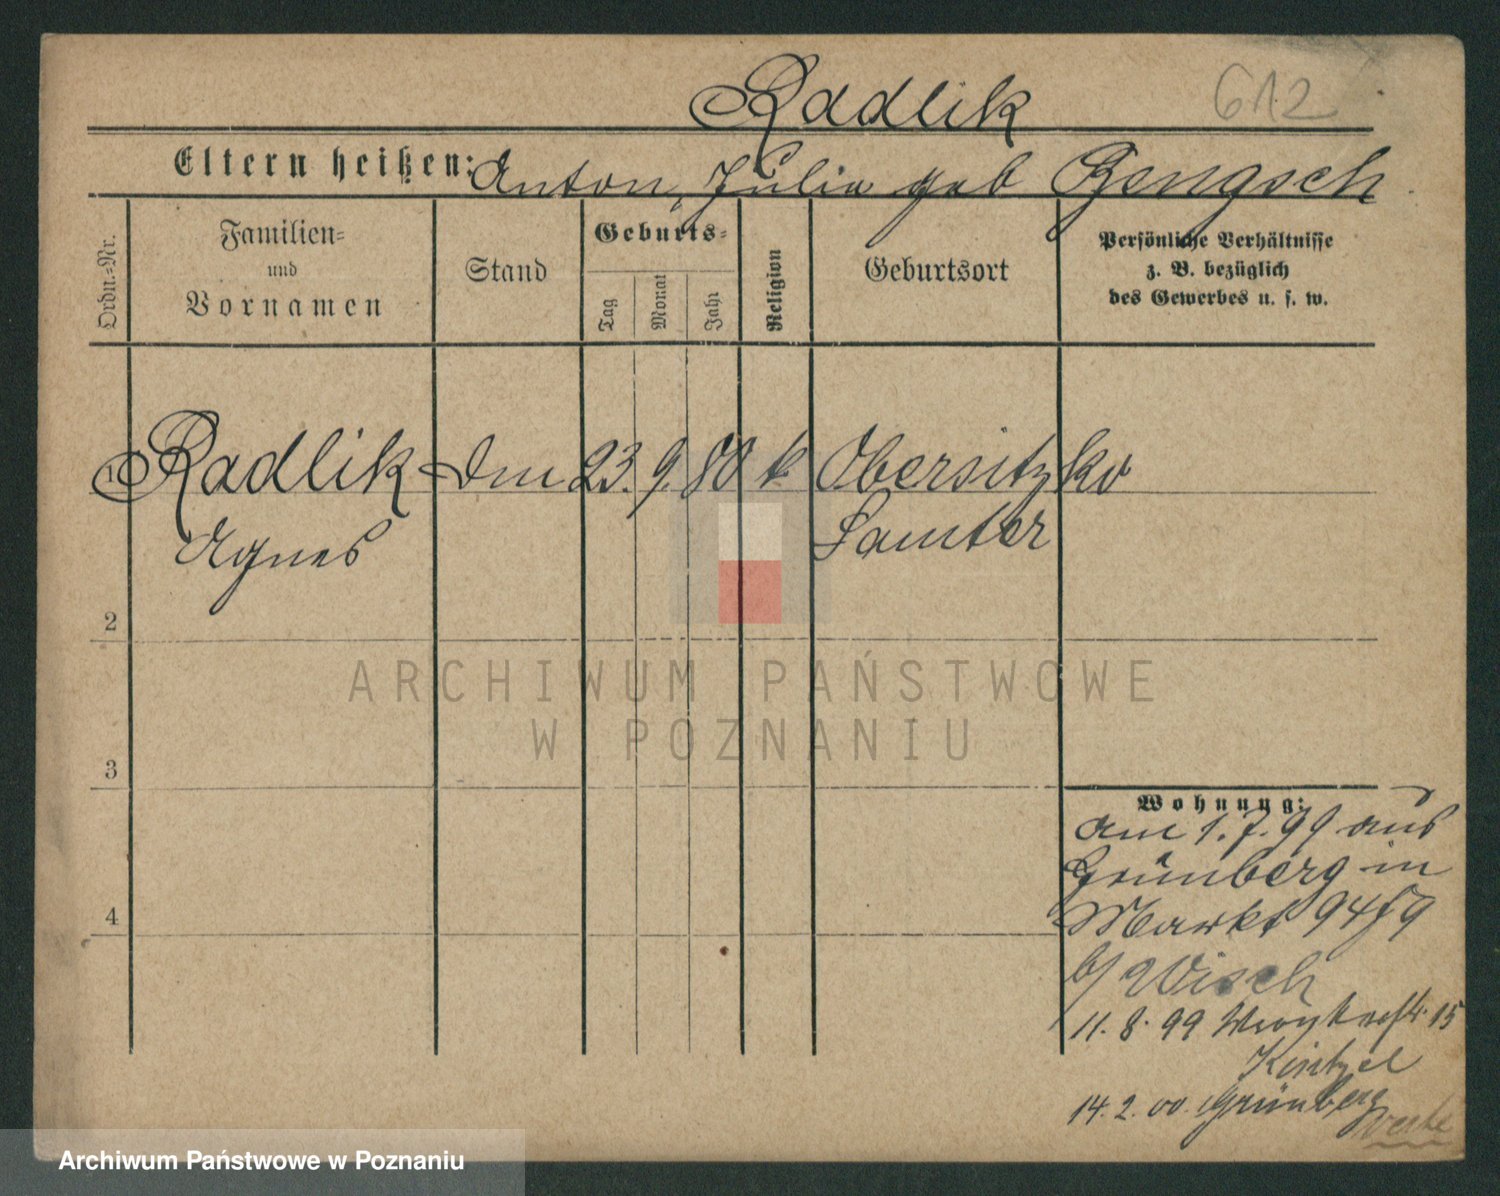 Radlik 612
Eltern heißen: Anton, Julia geb Bengsch
Ordn.-Nr.
Familien-
und
Vornamen
Stand
Geburts-
Tag
Monat
Jahr
Religion
Geburtsort
Persönliche Verhältnisse
z. B. bezüglich
des Gewerbes u. s. w.
1 Radlik Dm 23. 9. 80 k Obersitzko
Agnes Samter
2
3
4
ARCHIWUM PAŃSTWOWE
W POZNANIU
Wohnung:
am 1.7.99 aus
Grünberg in
Markt 94/9
b/ Wisch
11. 8. 99 15
14. 2. 00. Grünberg
Archiwum Państwowe w Poznaniu